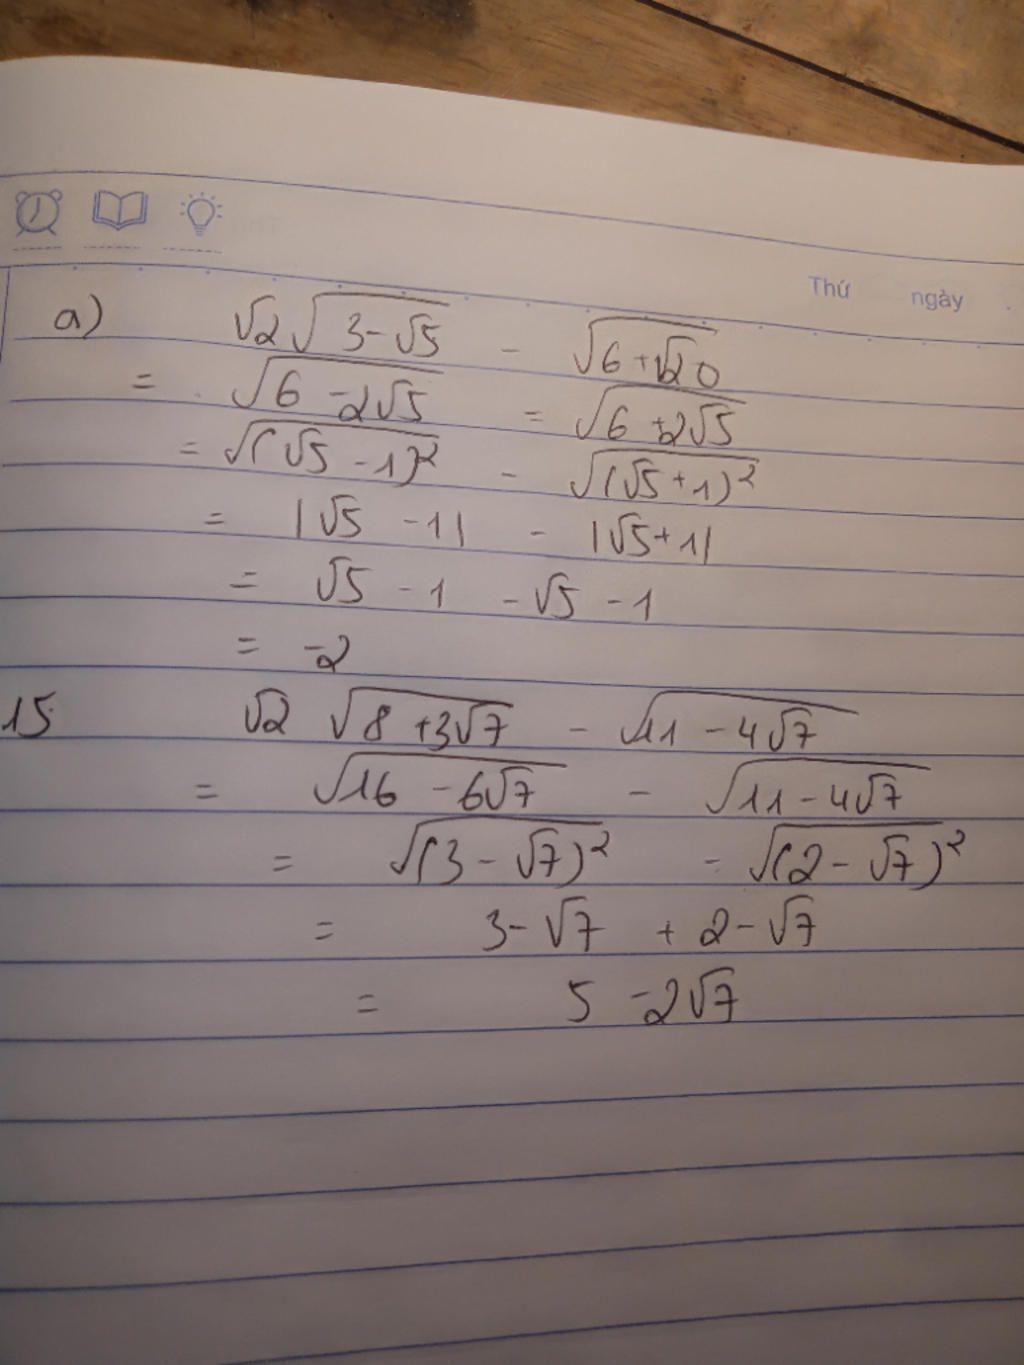 Thứ ngày
a) √2 √(3-√5) - √(6+√20)
= √(6-2√5) = √(6+2√5)
= √((√5-1)²) - √((√5+1)²)
= |√5-1| - |√5+1|
= √5-1 -√5-1
= -2
15 √2 √(8+3√7) - √(11-4√7)
= √(16-6√7) - √(11-4√7)
= √((3-√7)²) - √((2-√7)²)
= 3-√7 + 2-√7
= 5 -2√7